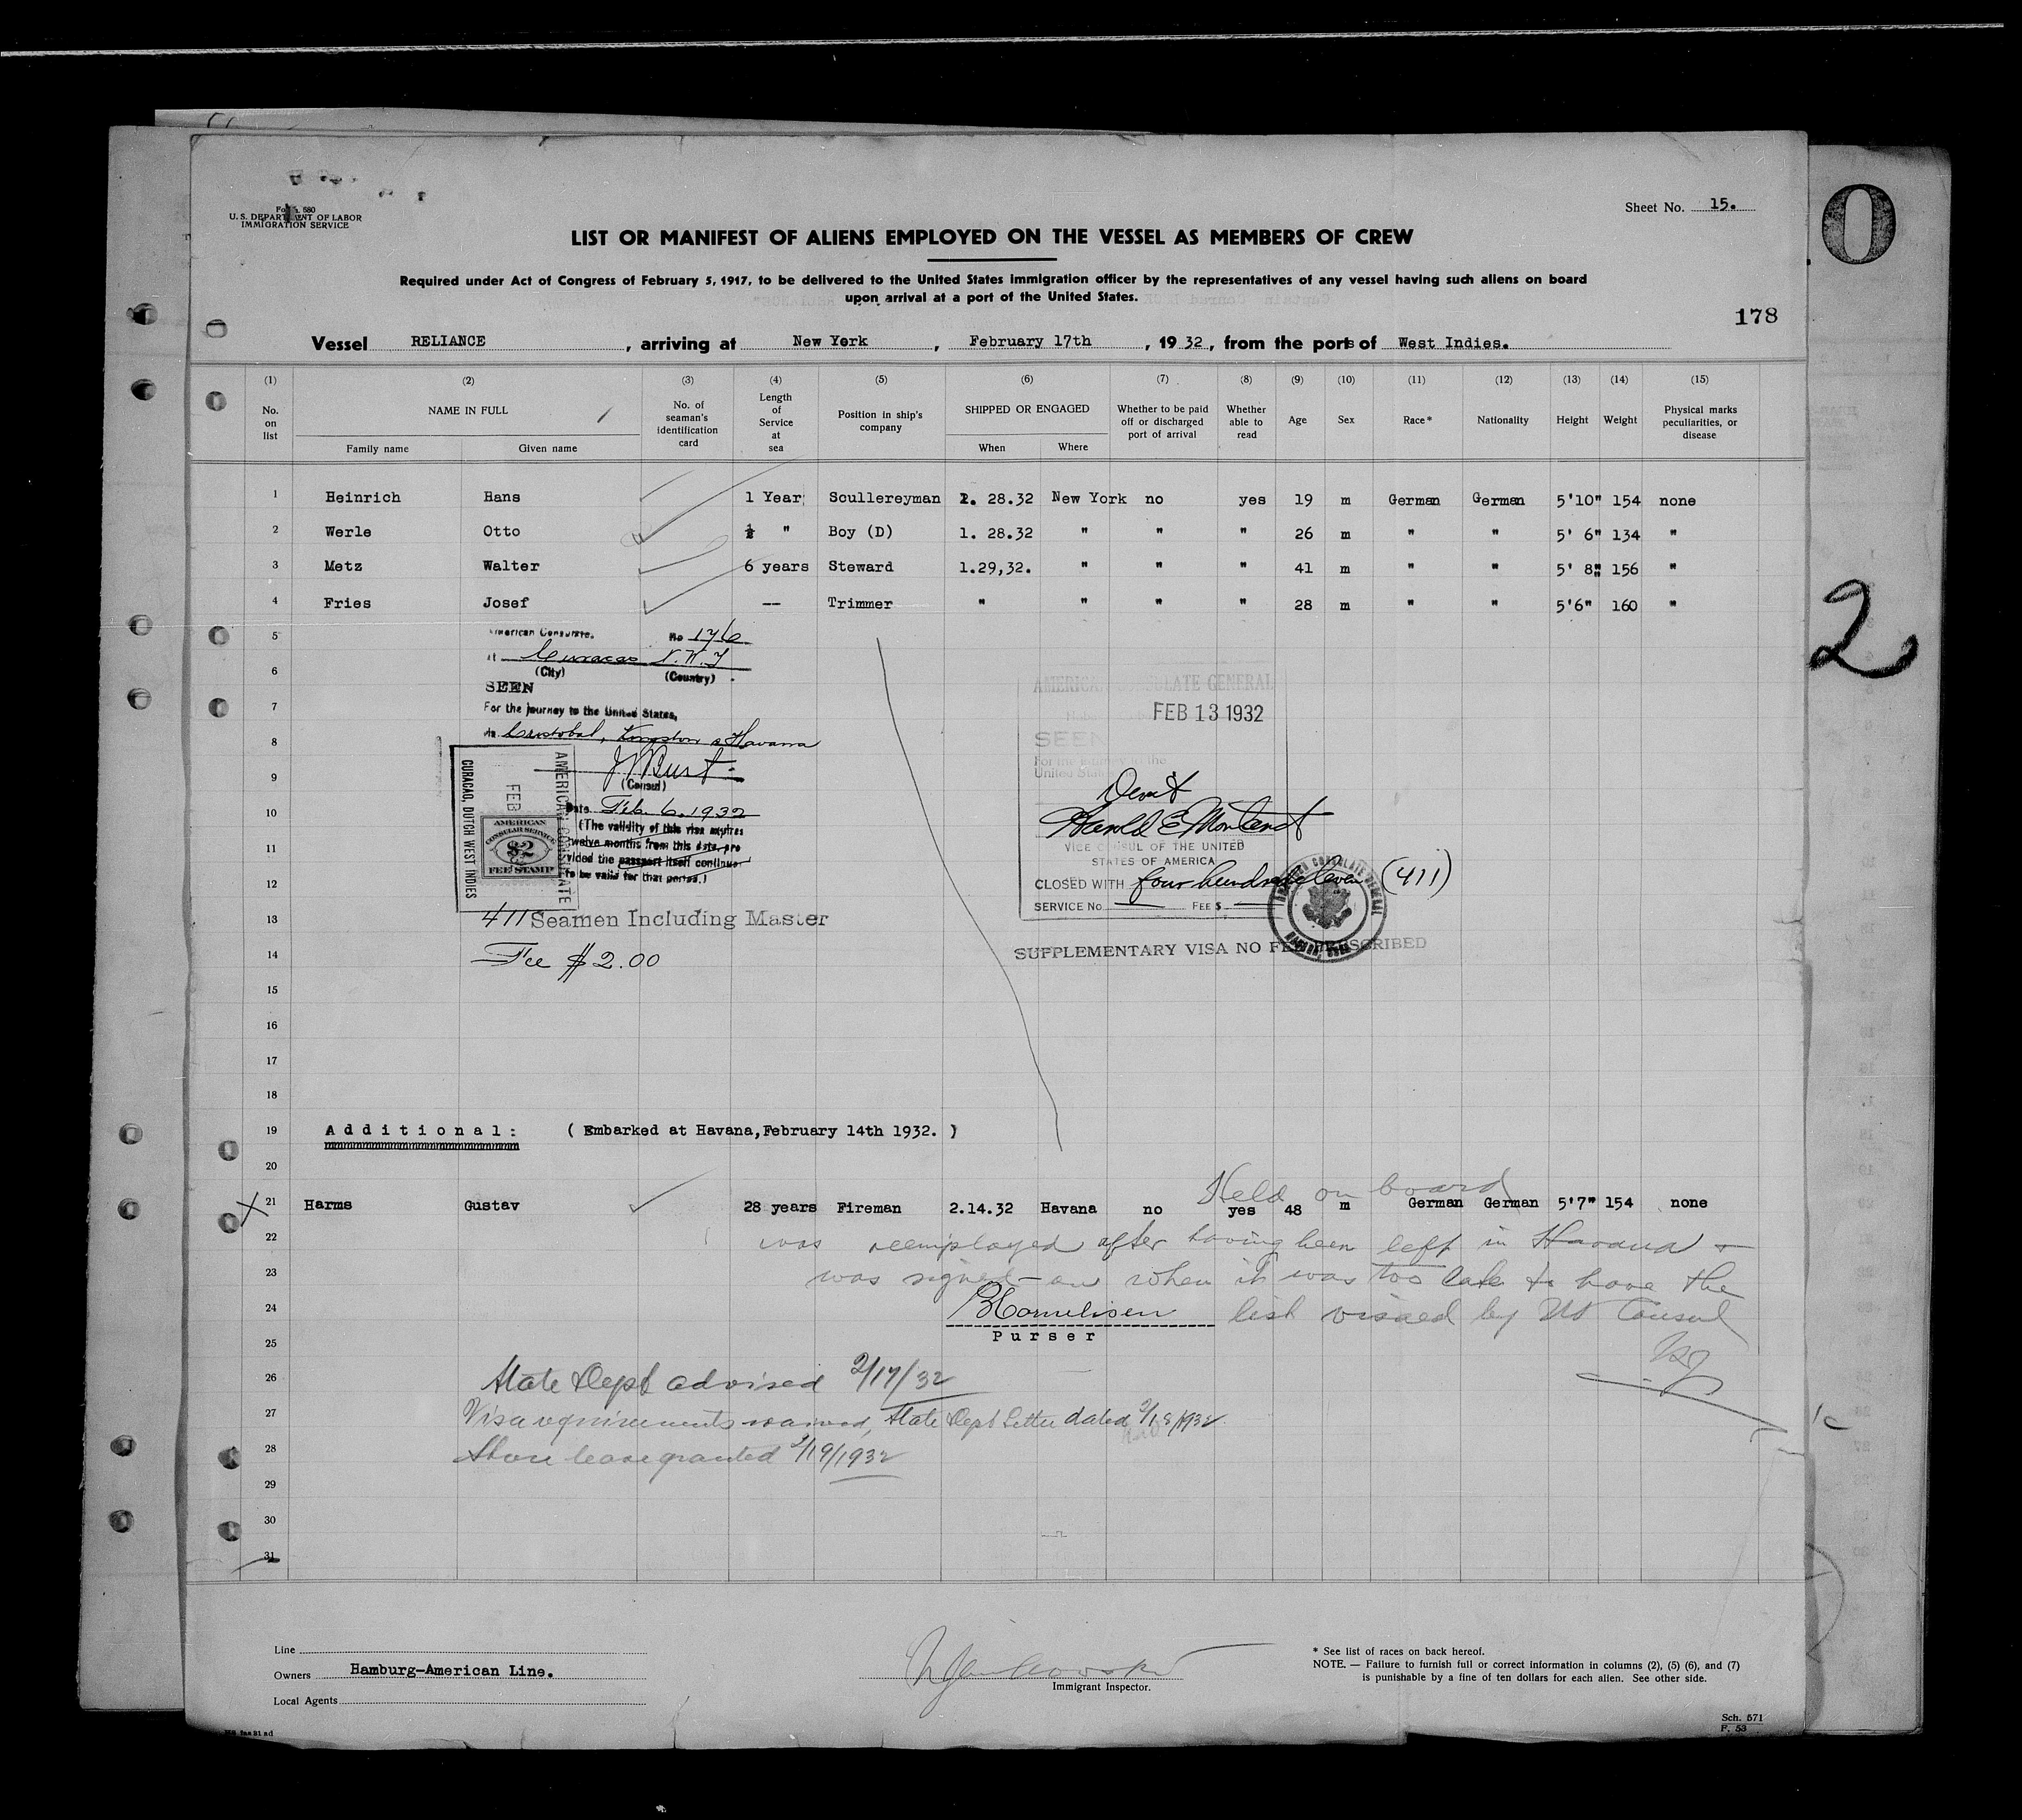 Form 580
U. S. DEPARTMENT OF LABOR
IMMIGRATION SERVICE
Sheet No. 15.
LIST OR MANIFEST OF ALIENS EMPLOYED ON THE VESSEL AS MEMBERS OF CREW
Required under Act of Congress of February 5, 1917, to be delivered to the United States immigration officer by the representatives of any vessel having such aliens on board
upon arrival at a port of the United States.
178
Vessel RELIANCE, arriving at New York, February 17th, 1932, from the ports of West Indies.
(1) (2) (3) (4) (5) (6) (7) (8) (9) (10) (11) (12) (13) (14) (15)
No. on list NAME IN FULL Family name Given name No. of seaman's identification card Length of Service at sea Position in ship's company SHIPPED OR ENGAGED When Where Whether to be paid off or discharged port of arrival Whether able to read Age Sex Race* Nationality Height Weight Physical marks peculiarities, or disease
1 Heinrich Hans 1 Year Scullereyman 1. 28.32 New York no yes 19 m German German 5'10" 154 none
2 Werle Otto ½ " Boy (D) 1. 28.32 " " " 26 m " " 5' 6" 134 "
3 Metz Walter 6 years Steward 1.29,32. " " " 41 m " " 5' 8" 156 "
4 Fries Josef -- Trimmer " " " " 28 m " " 5'6" 160 "
5
6
7
8
9
10
11
12
13
14
15
16
17
18
American Consulate. No 176
At Curacao N.W.I
(City) (Country)
SEEN
For the journey to the United States,
via Cristobal, Kingston & Havana
(Consul)
Date Feb. 6. 1932
(The validity of this visa expires
twelve months from this date, pro
vided the passport itself continues
to be valid for that period.)
AMERICAN CONSULATE
FEB
CURACAO, DUTCH WEST INDIES
AMERICAN
CONSULAR SERVICE
$2
FEE STAMP
411 Seamen Including Master
Fee $2.00
AMERICAN CONSULATE GENERAL
FEB 13 1932
SEEN
For the journey to the
United States
Harold E Montamat
VICE CONSUL OF THE UNITED
STATES OF AMERICA
CLOSED WITH four hundred eleven (411)
SERVICE No. FEE $
SUPPLEMENTARY VISA NO FEE PRESCRIBED
19 Additional: ( Embarked at Havana, February 14th 1932. )
20
Held on board
21 Harms Gustav 28 years Fireman 2.14.32 Havana no yes 48 m German German 5'7" 154 none
22 was reemployed after having been left in Havana &
23 was signed on when it was too late to have the
24 list visaed by US Consul
Cornelisen
25 Purser
26 State Dept advised 2/17/32
27 Visa requirements waived, State Dept Letter dated 2/18/1932.
28 Shore leave granted 2/19/1932
29
30
31
Line
Owners Hamburg-American Line.
Local Agents
Immigrant Inspector.
* See list of races on back hereof.
NOTE. — Failure to furnish full or correct information in columns (2), (5) (6), and (7)
is punishable by a fine of ten dollars for each alien. See other side.
Sch. 571
F. 53
0
2